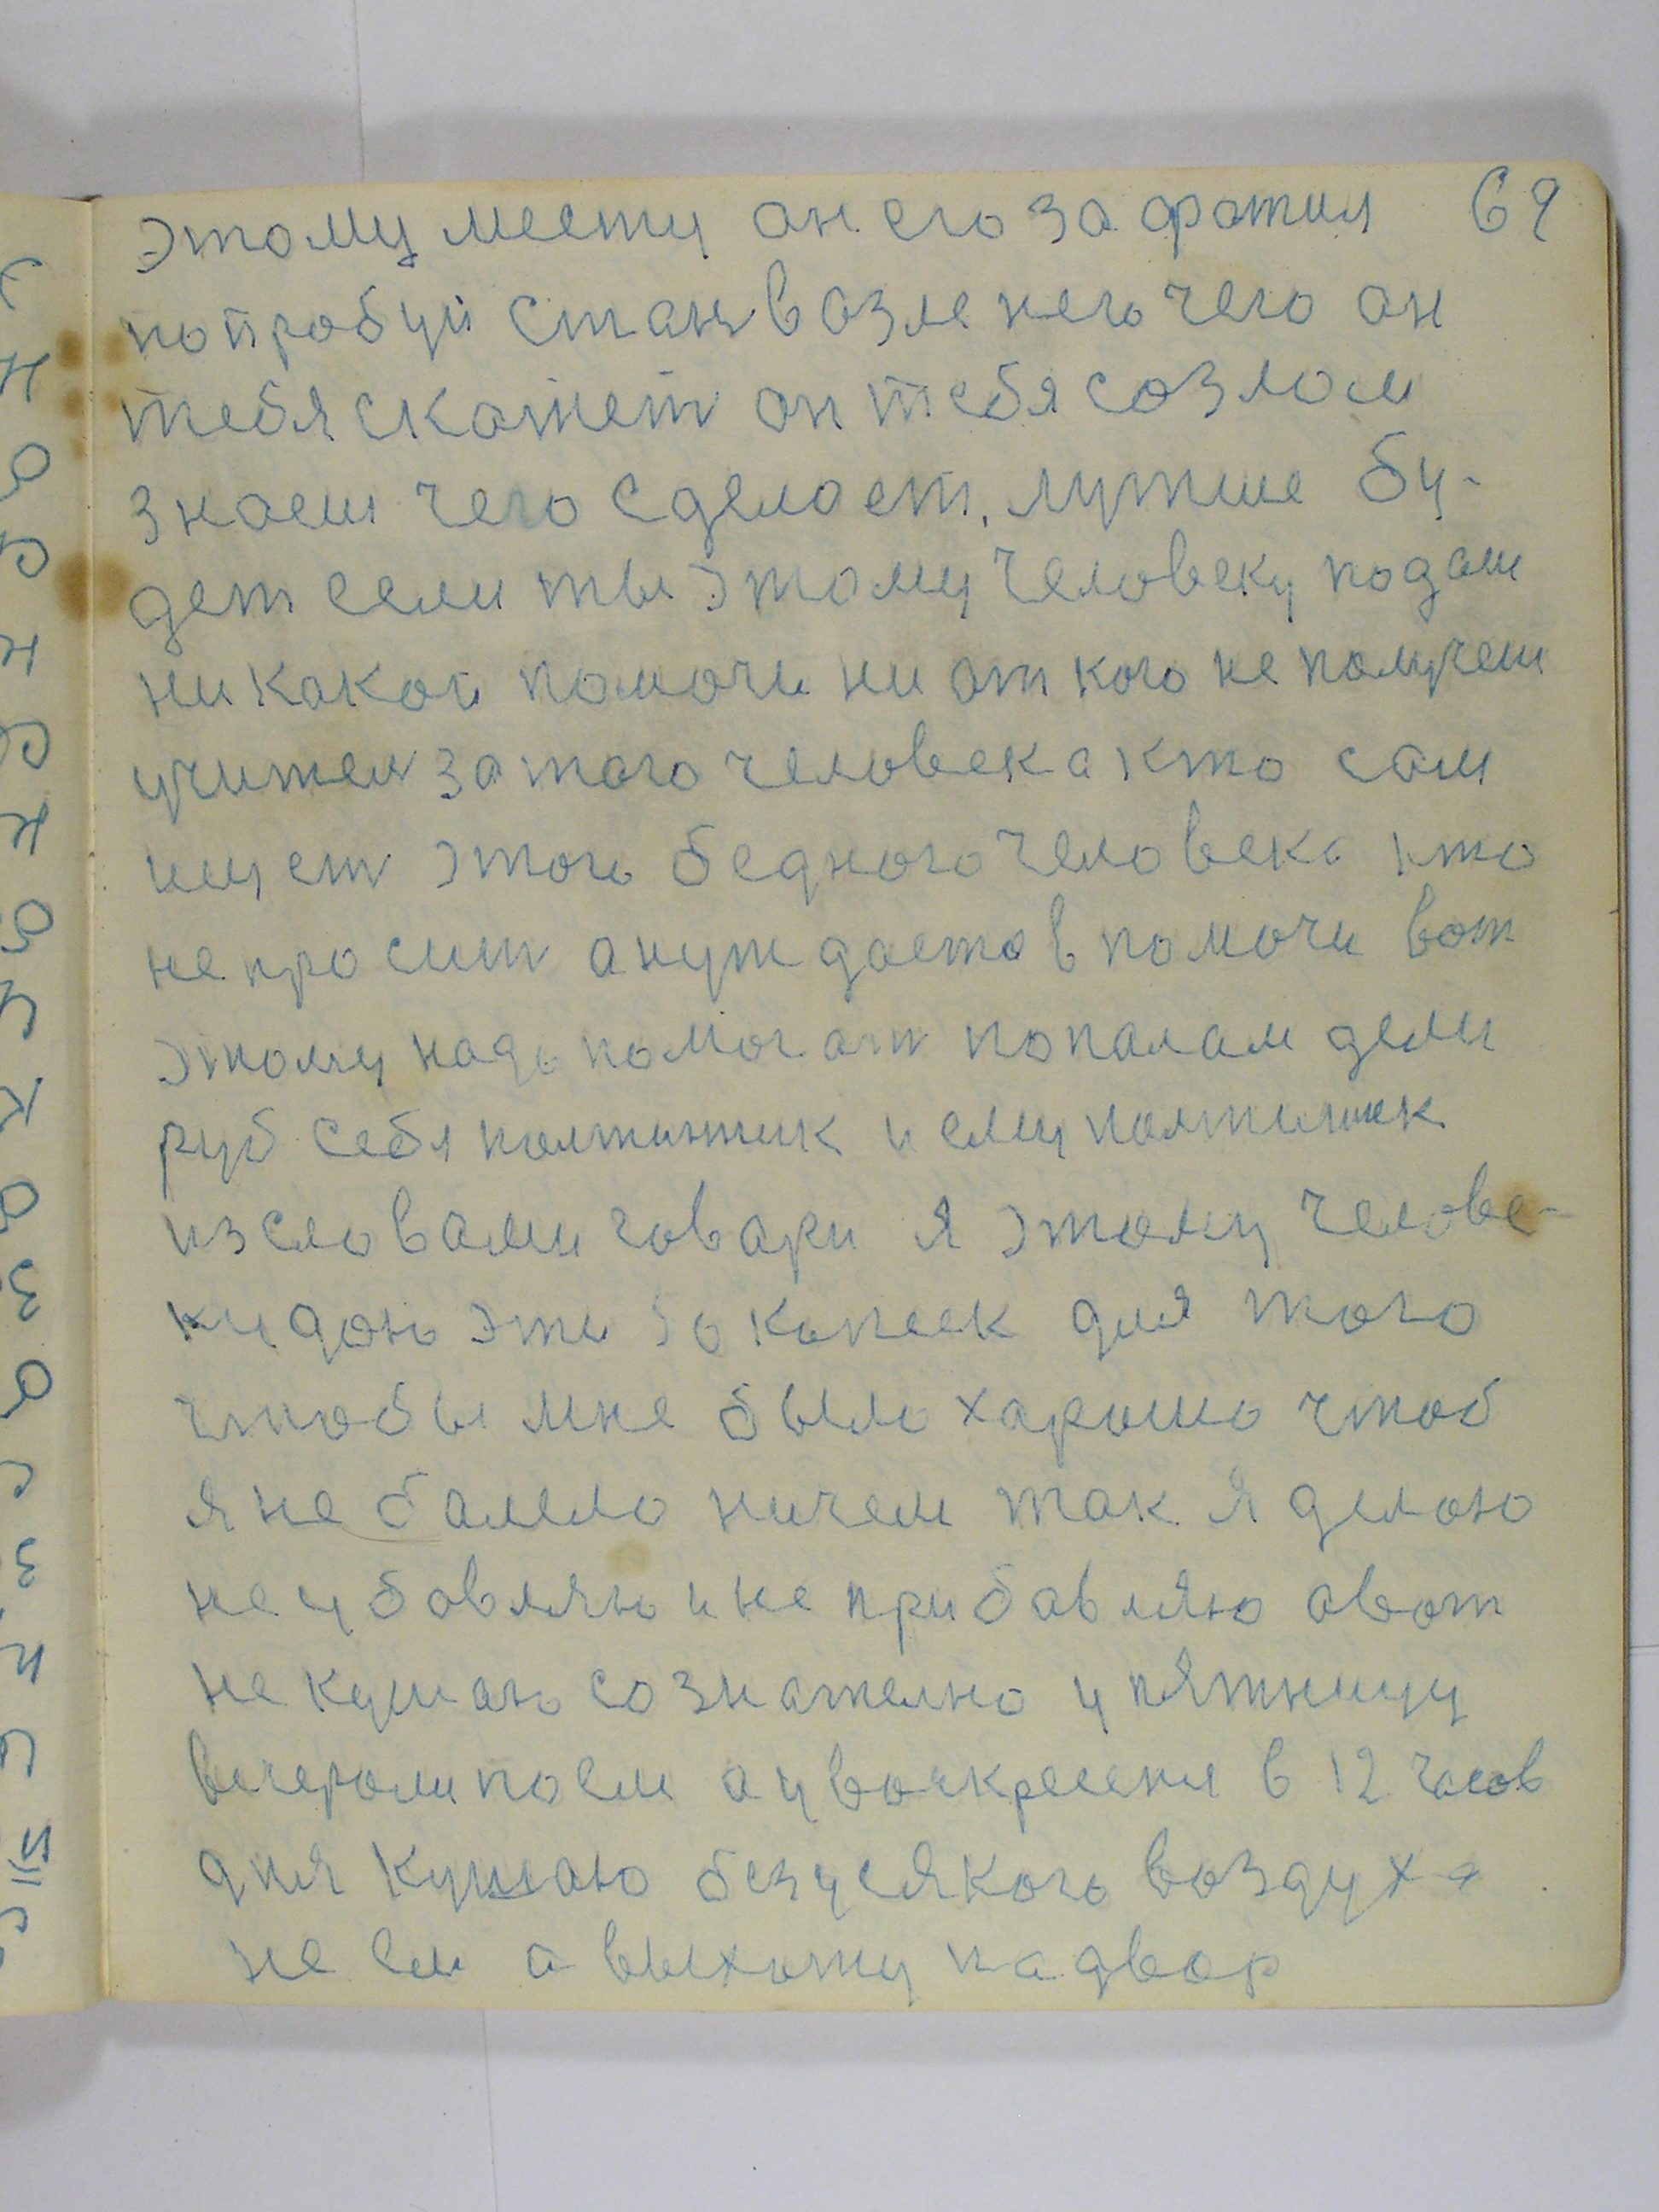 этому месту он его зафотил 69
попробуй стань возле него чего он
тебя скажет он тебя со злом
знаеш чего сделает. лутше бу-
дет если ты этому человеку подаш
никакой помочи ни от кого не получеш
учител за того человека кто сам
ищет этого бедного человека кто
не просит а нуждается в помочи вот
этому надо помогат пополам дели
руб себя полтинник и ему полтинник
из словами говари я этому челове-
ку даю эти 50 копеек для того
чтобы мне было харошо чтоб
я не балело ничем так я делаю
не убовляю и не прибавляю а вот
не кушаю сознателно у пятницу
вечером поем а у воскресеня в 12 часов
дня кушаю без усякого воздуха
не ем а выхожу на двор